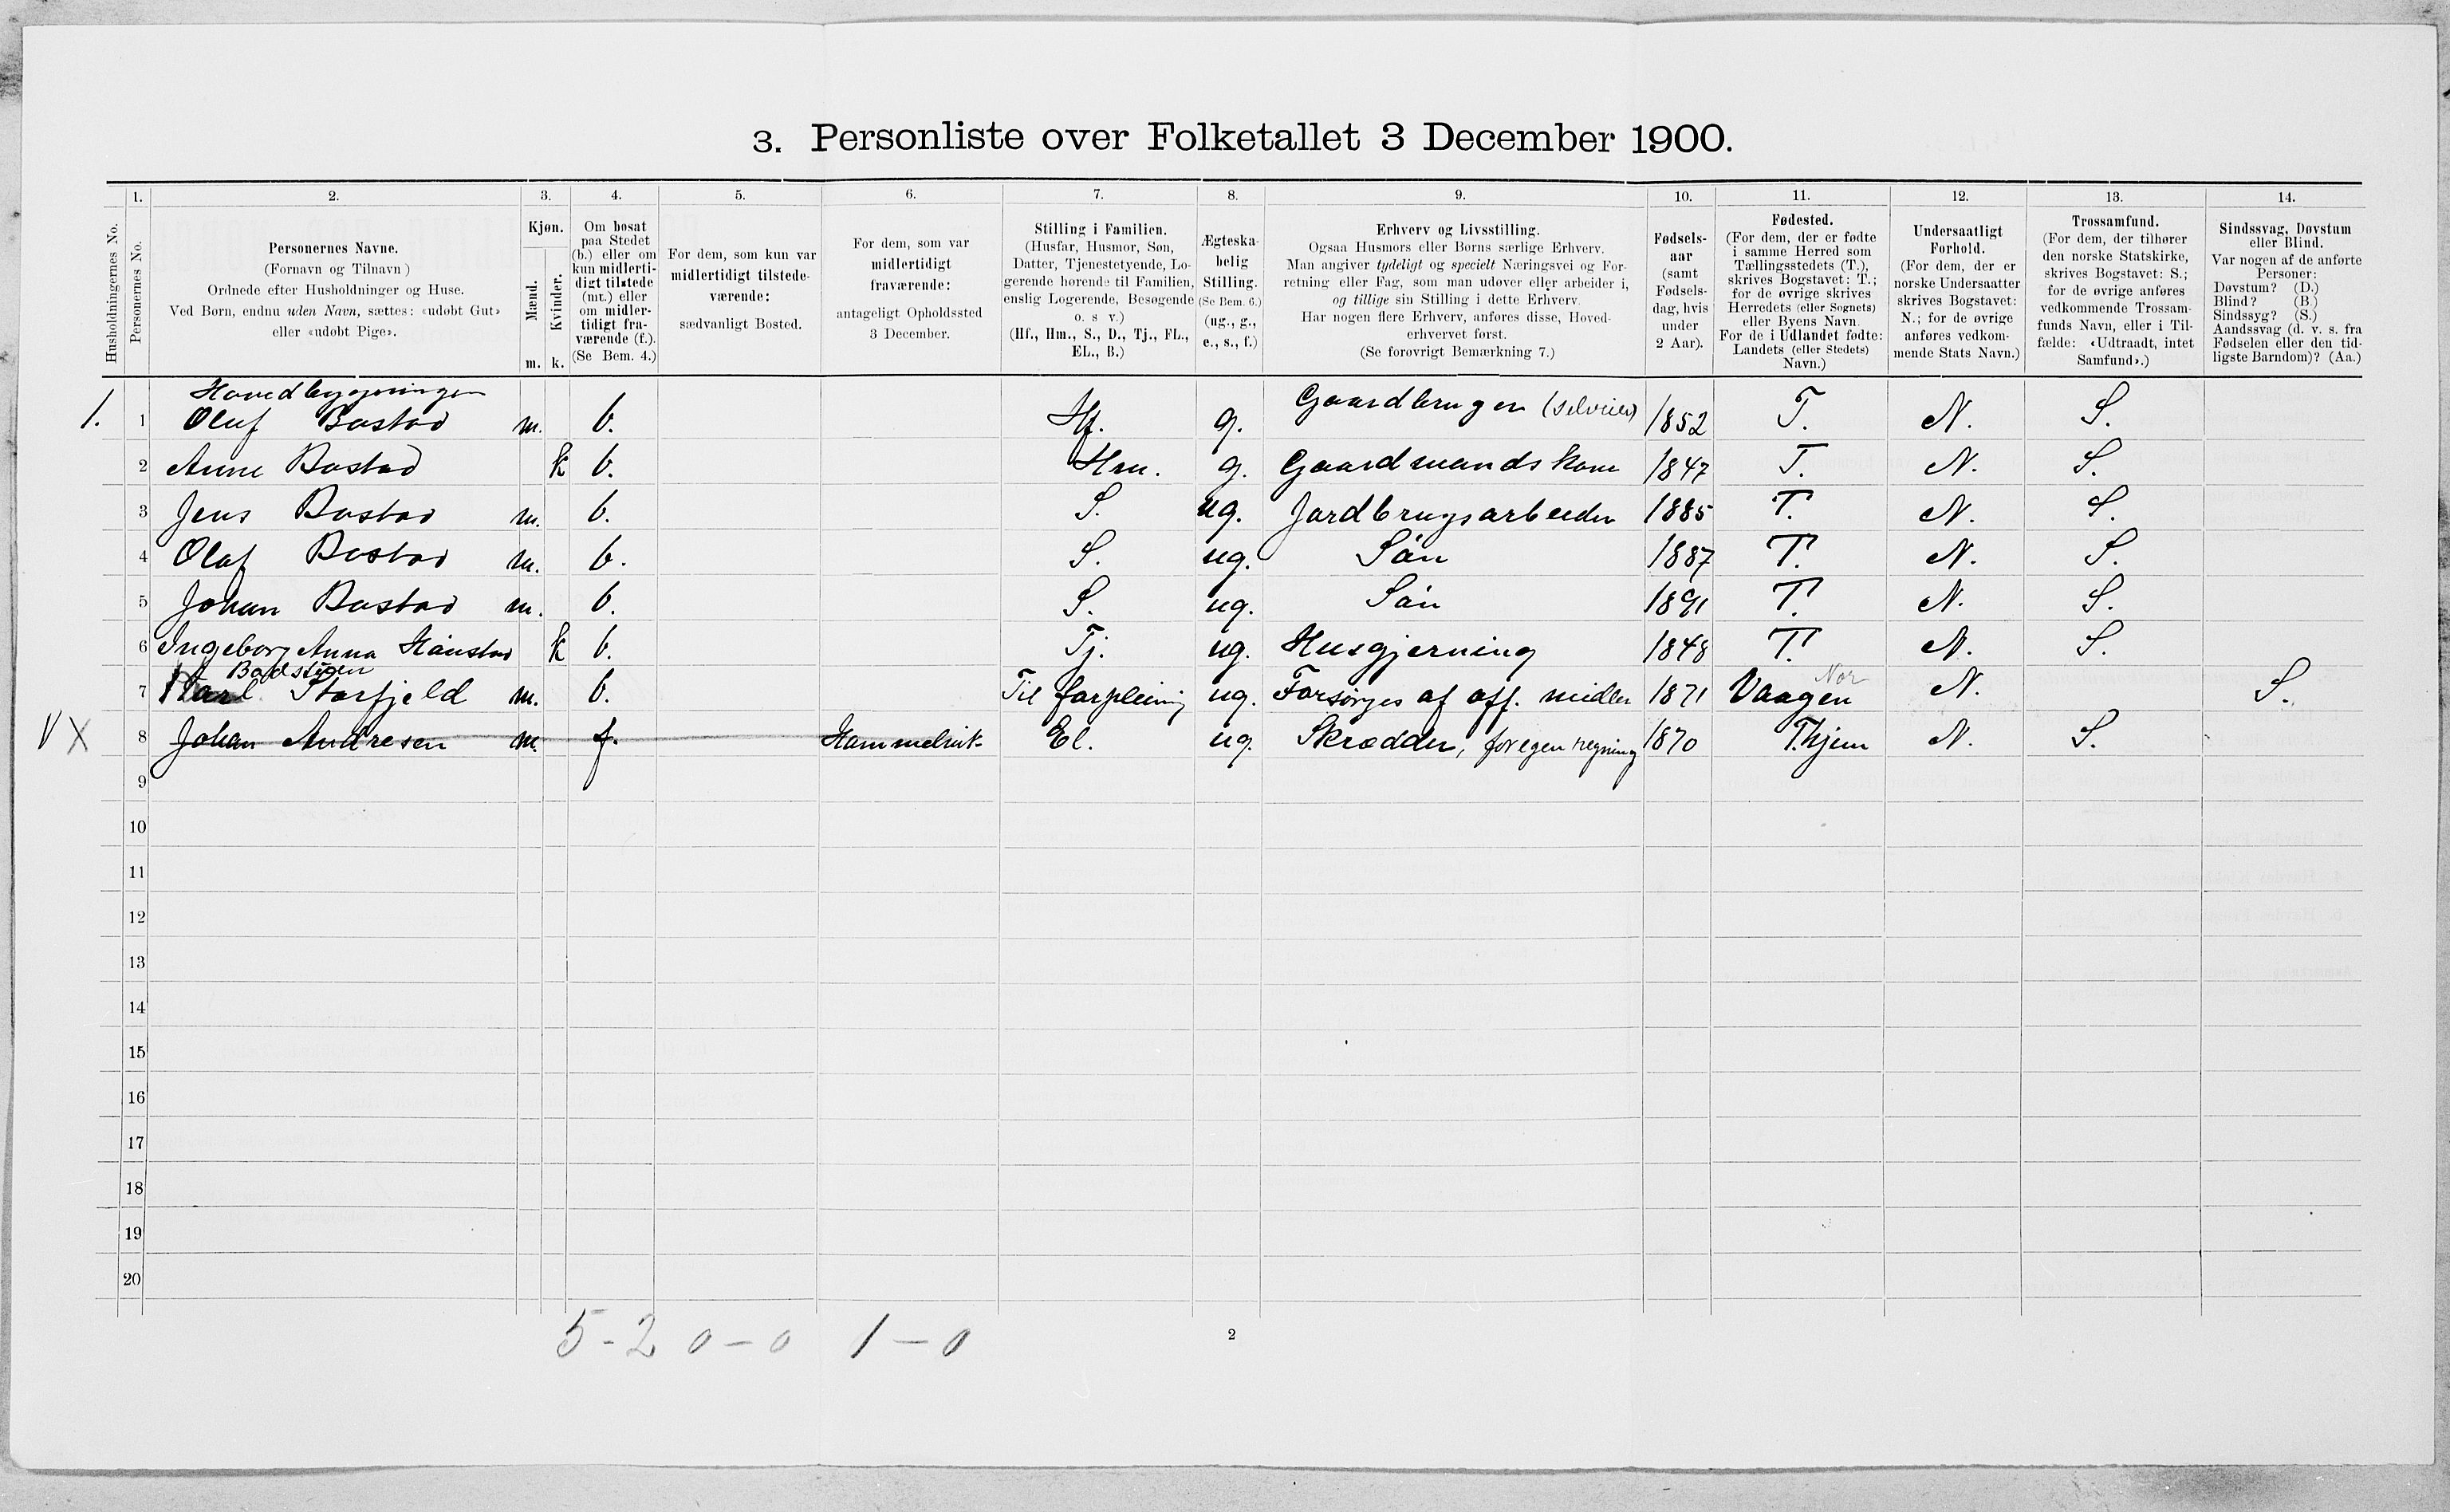 3. Personliste over Folketallet 3 December 1900.
1. 2. 3. 4. 5. 6. 7. 8. 9. 10. 11. 12. 13. 14.
Husholdningernes No.
Personernes No.
Personernes Navne.
(Fornavn og Tilnavn)
Ordnede efter Husholdninger og Huse.
Ved Børn, endnu uden Navn, sættes: «udøbt Gut»
eller «udøbt Pige».
Kjøn.
Mænd.
Kvinder.
m. k.
Om bosat
paa Stedet
(b.) eller om
kun midlerti-
digt tilstede
(mt.) eller
om midler-
tidigt fra-
værende (f.).
(Se Bem. 4.)
For dem, som kun var
midlertidigt tilstede-
værende:
sædvanligt Bosted.
For dem, som var
midlertidigt
fraværende:
antageligt Opholdssted
3 December.
Stilling i Familien.
(Husfar, Husmor, Søn,
Datter, Tjenestetyende, Lo-
gerende hørende til Familien,
enslig Logerende, Besøgende
o. s v.)
(Hf., Hm., S., D., Tj., FL.,
EL., B.)
Ægteska-
belig
Stilling.
(Se Bem. 6.)
(ug., g.,
e., s., f.)
Erhverv og Livsstilling.
Ogsaa Husmors eller Børns særlige Erhverv.
Man angiver tydeligt og specielt Næringsvei og For-
retning eller Fag, som man udøver eller arbeider i,
og tillige sin Stilling i dette Erhverv.
Har nogen flere Erhverv, anføres disse, Hoved-
erhvervet først.
(Se forøvrigt Bemærkning 7.)
Fødsels-
aar
(samt
Fødsels-
dag, hvis
under
2 Aar).
Fødested.
(For dem, der er fødte
i samme Herred som
Tællingsstedets (T.),
skrives Bogstavet: T.;
for de øvrige skrives
Herredets (eller Sognets)
eller Byens Navn.
For de i Udlandet fødte:
Landets (eller Stedets)
Navn.)
Undersaatligt
Forhold.
(For dem, der er
norske Undersaatter
skrives Bogstavet:
N.; for de øvrige
anføres vedkom-
mende Stats Navn.)
Trossamfund.
(For dem, der tilhører
den norske Statskirke,
skrives Bogstavet: S.;
for de øvrige anføres
vedkommende Trossam-
funds Navn, eller i Til-
fælde: «Udtraadt, intet
Samfund».)
Sindssvag, Døvstum
eller Blind.
Var nogen af de anførte
Personer:
Døvstum? (D.)
Blind? (B.)
Sindssyg? (S.)
Aandssvag (d. v. s. fra
Fødselen eller den tid-
ligste Barndom)? (Aa.)
Hovedbygningen
1. 1 Oluf Bostad m. b. Hf. g. Gaardbruger (selveier) 1852 T. N. S.
2 Anne Bostad k b. Hm. g. Gaardmandskone 1847 T. N. S.
3 Jens Bostad m. b. S. ug. Jordbrugsarbeider 1885 T. N. S.
4 Olaf Bostad m. b. S. ug. Søn 1887 T. N. S.
5 Johan Bostad m. b. S. ug. Søn 1891 T. N. S.
6 Ingeborg Anna k b. Tj. ug. Husgjerning 1848 T. N. S.
Badstuen
Nor
7 Karl Storfjeld m. b. Til forpleining ug. Forsørges af off. midler 1871 Vaagen N. S.
V X 8 Johan Andresen m. f. Hammelvik El. ug. Skrædder, for egen regning 1870 T.hjem N. S.
9
10
11
12
13
14
15
16
17
18
19
20
5-2 0-0 1-0
2